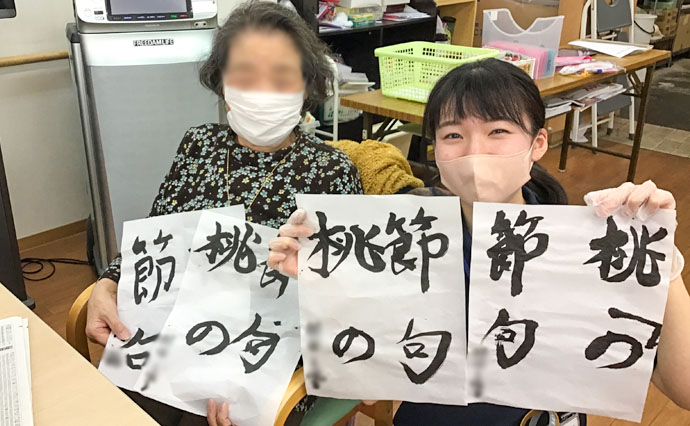 FREEDAMLIFE
節句
桃の
句
桃の
節句
桃の
節句